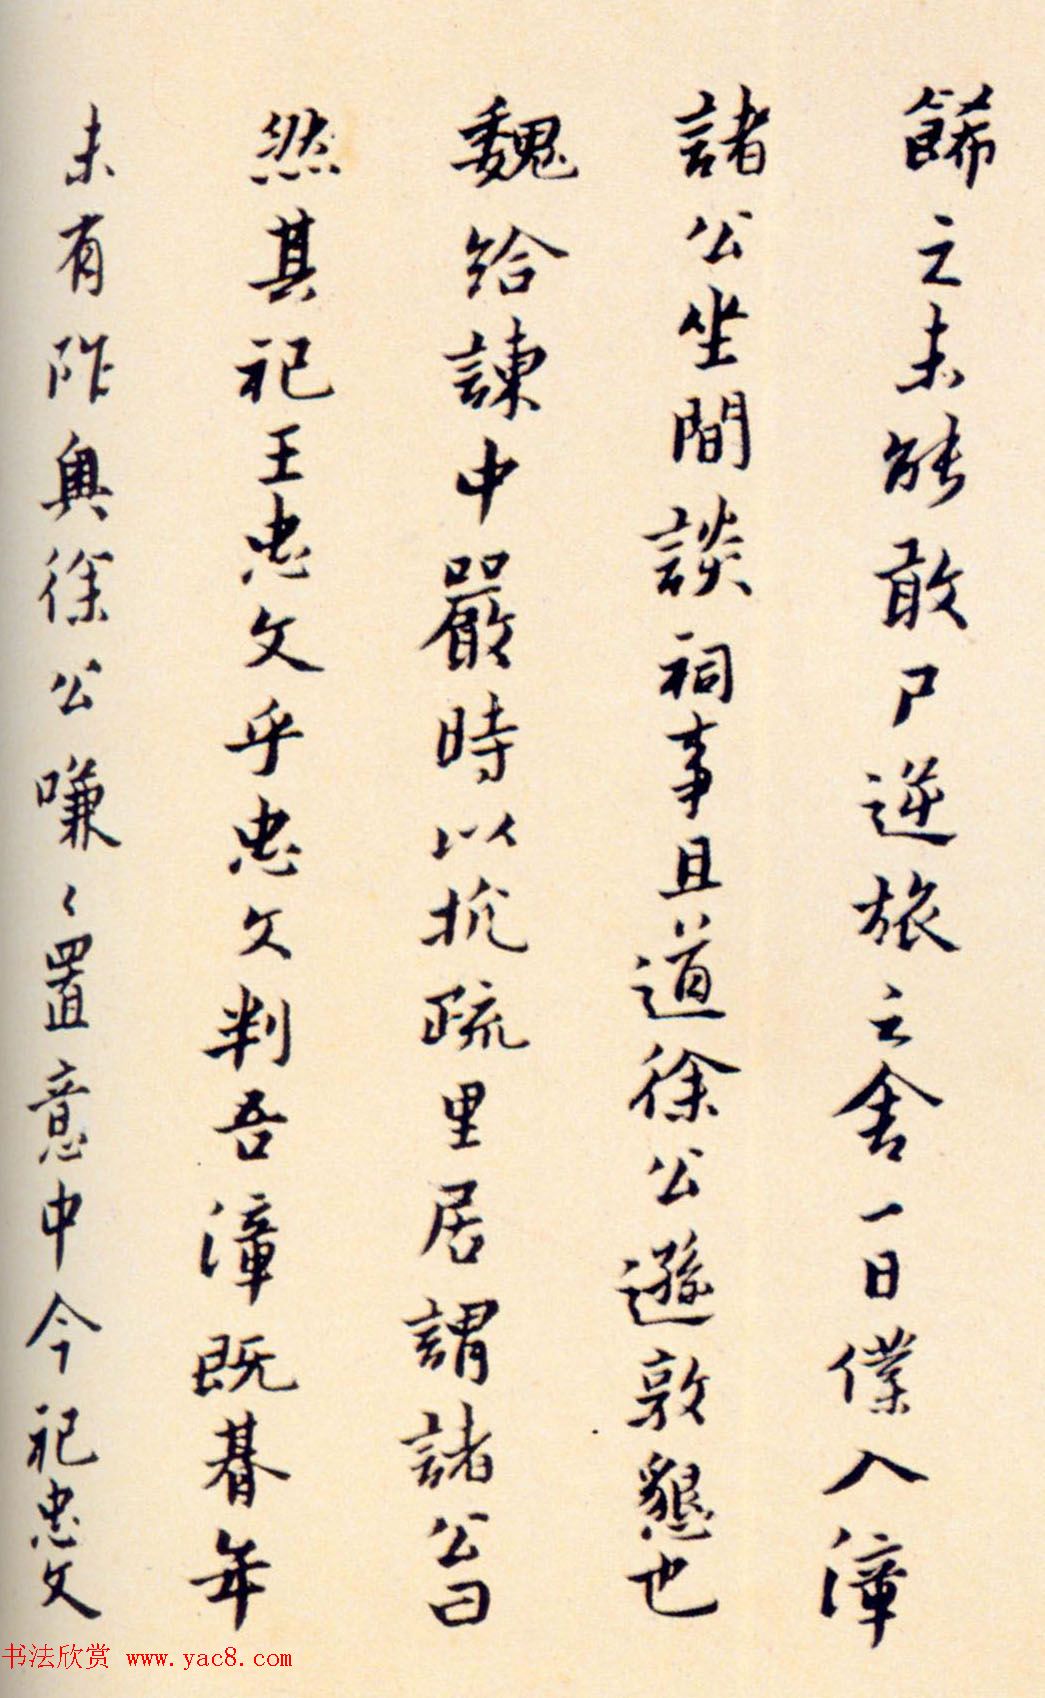 餙之未能敢尸逆旅之舍一日僕入漳
諸公坐間談祠事且道徐公遜敦懇也
魏給諫中嚴時以抗疏里居謂諸公曰
然其祀王忠文乎忠文判吾漳既朞年
未有阼與徐公嗛〻置意中今祀忠文
书法欣赏 www.yac8.com